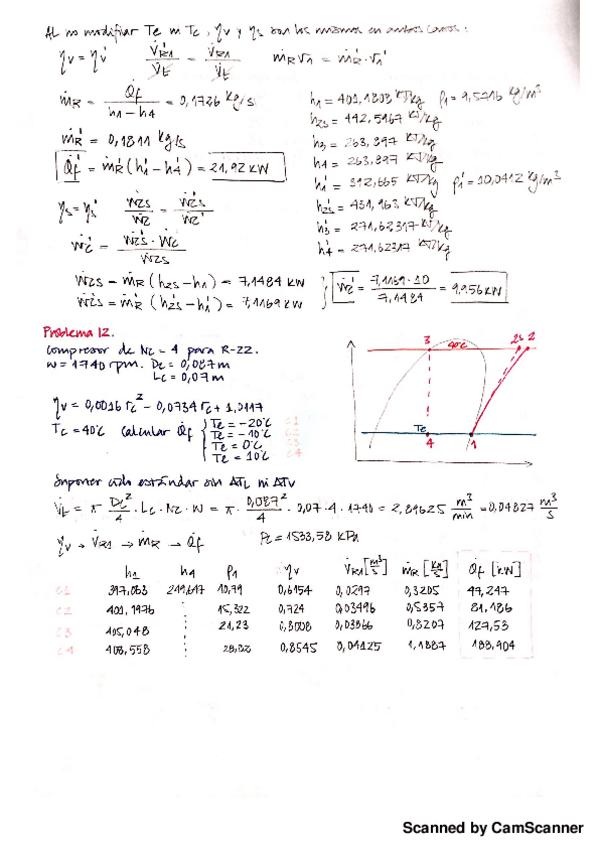 Al no modificar Te ni Tc, ηv y ηs son los mismos en ambos casos:
ηv = ηv' V̇R1/V̇t = V̇R1'/V̇t ṁR v1 = ṁR'·v1'
ṁR = Q̇f/(h1-h4) = 0,1726 kg/s
ṁR' = 0,1811 kg/s
Q̇f' = ṁR'(h1'-h4') = 21,92 kW
ηs = ηs' Ẇ2s/Ẇ2 = Ẇ2s'/Ẇ2'
Ẇc' = Ẇ2s'·Ẇc/Ẇ2s
h1 = 401,1803 kJ/kg ρ1 = 9,5216 kg/m³
h2s = 442,5967 kJ/kg
h3 = 263,897 kJ/kg
h4 = 263,897 kJ/kg
h1' = 392,665 kJ/kg ρ1' = 10,0412 kg/m³
h2s' = 431,963 kJ/kg
h3' = 271,62317 kJ/kg
h4' = 271,62317 kJ/kg
Ẇ2s = ṁR (h2s-h1) = 7,1484 kW
Ẇ2s' = ṁR' (h2s'-h1') = 7,1169 kW
Ẇc' = 7,1169·10/7,1484 = 9,956 kW
Problema 12.
Compresor de Nc = 4 para R-22.
w = 1740 rpm. Dc = 0,087 m
Lc = 0,07 m
ηv = 0,0016 rc² - 0,0734 rc + 1,0117
Tc = 40ºC calcular Q̇f
Te = -20ºC C1
Te = -10ºC C2
Te = 0ºC C3
Te = 10ºC C4
3 40ºC 2s 2
Te
4 1
Suponer ciclo estándar sin ΔTL ni ΔTV
V̇t = π Dc²/4 · Lc · Nc · w = π · 0,087²/4 · 0,07 · 4 · 1740 = 2,89625 m³/min = 0,04827 m³/s
ηv → V̇R1 → ṁR → Q̇f Pc = 1533,58 kPa
h1 h4 ρ1 ηv V̇R1 [m³/s] ṁR [kg/s] Q̇f [kW]
C1 397,063 249,647 10,79 0,6154 0,0297 0,3205 47,247
C2 401,1976 15,322 0,724 0,03496 0,5357 81,186
C3 405,048 21,23 0,8008 0,03866 0,8207 127,53
C4 408,558 28,82 0,8545 0,04125 1,1887 188,904
Scanned by CamScanner